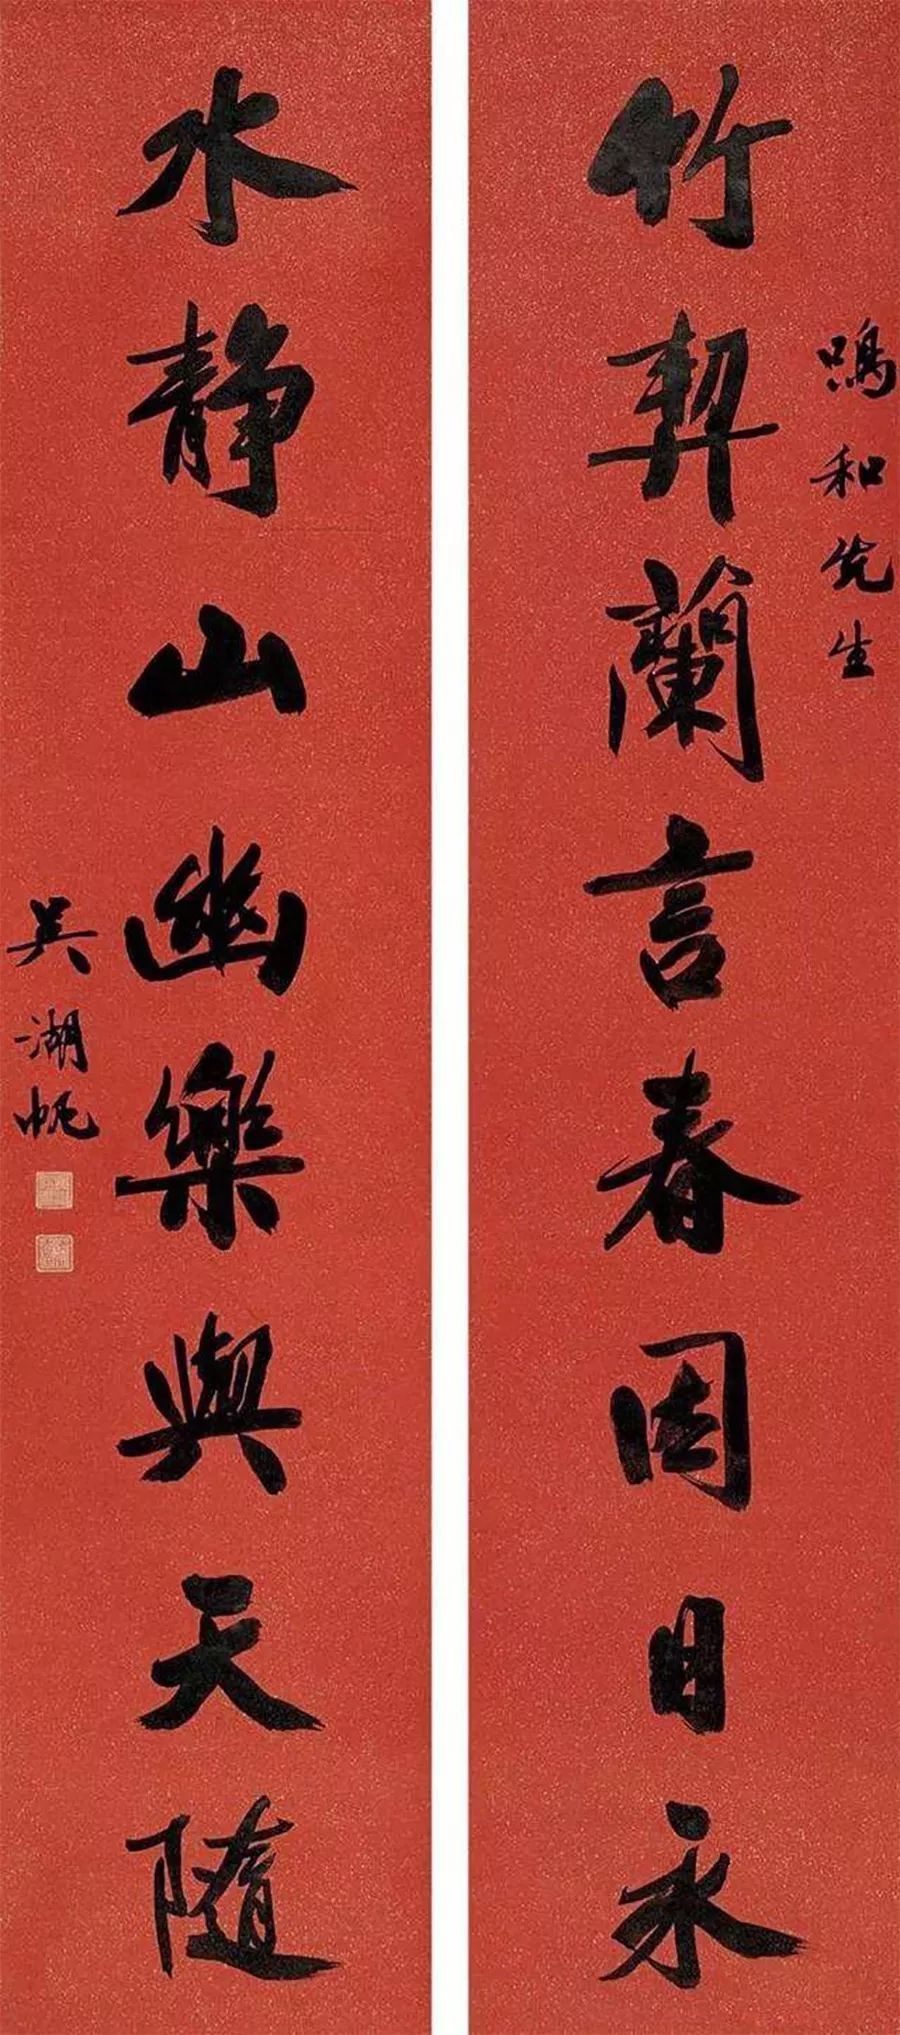 鳴和先生
竹契蘭言春因日永
水静山幽樂與天隨
吳湖帆